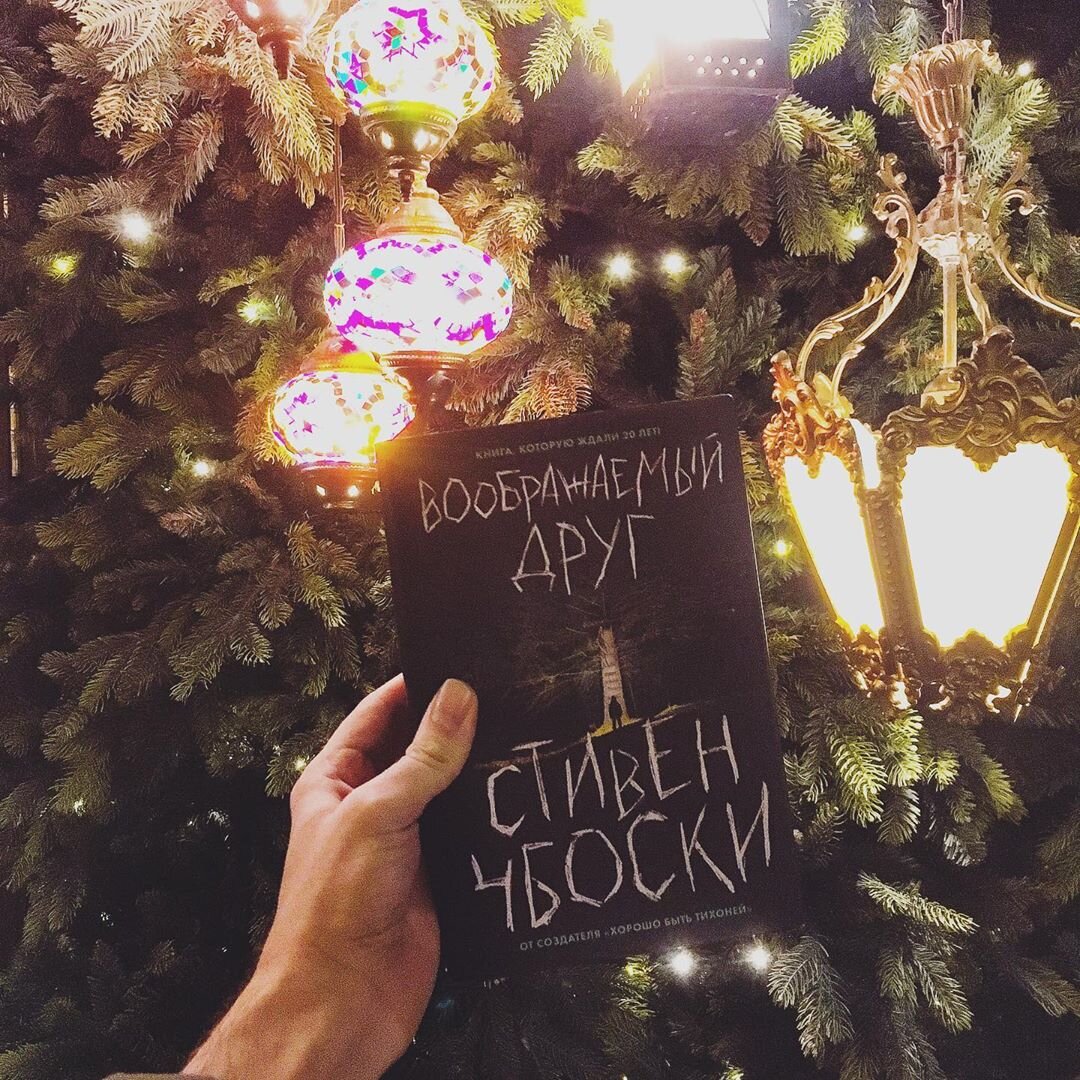 КНИГА, КОТОРУЮ ЖДАЛИ 20 ЛЕТ!
ВООБРАЖАЕМЫЙ
ДРУГ
СТИВЕН
ЧБОСКИ
ОТ СОЗДАТЕЛЯ «ХОРОШО БЫТЬ ТИХОНЕЙ»